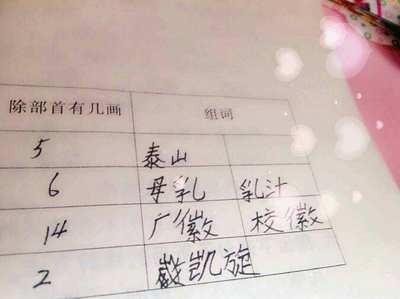 除部首有几画 组词
5 泰山
6 母乳 乳汁
14 广徽 校徽
2 凯旋